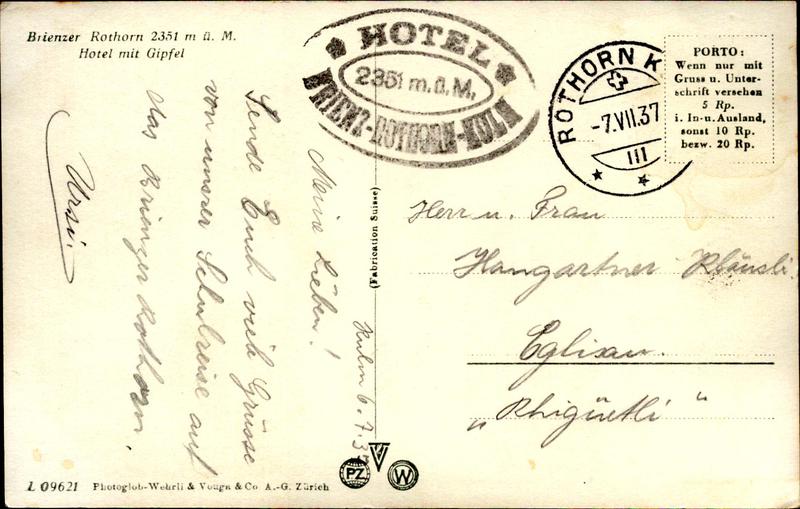 Brienzer Rothorn 2351 m ü. M.
Hotel mit Gipfel
HOTEL
2351 m.ü.M.
BRIENZ-ROTHORN-KULM
ROTHORN K
-7.VII.37
III
PORTO:
Wenn nur mit
Gruss u. Unter-
schrift versehen
5 Rp.
i. In- u. Ausland,
sonst 10 Rp.
bezw. 20 Rp.
Kulm 6.7.37
Meine Lieben!
Sende Euch viele Grüsse
von unserer Schulreise auf
das Brienzer Rothorn.
Ursi.
(Fabrication Suisse)
Herr u. Frau
Hangartner Kläusli.
Eglisau.
„Rhigüetli“
L 09621 Photoglob-Wehrli & Vouga & Co A.-G. Zürich
PZ
V
W